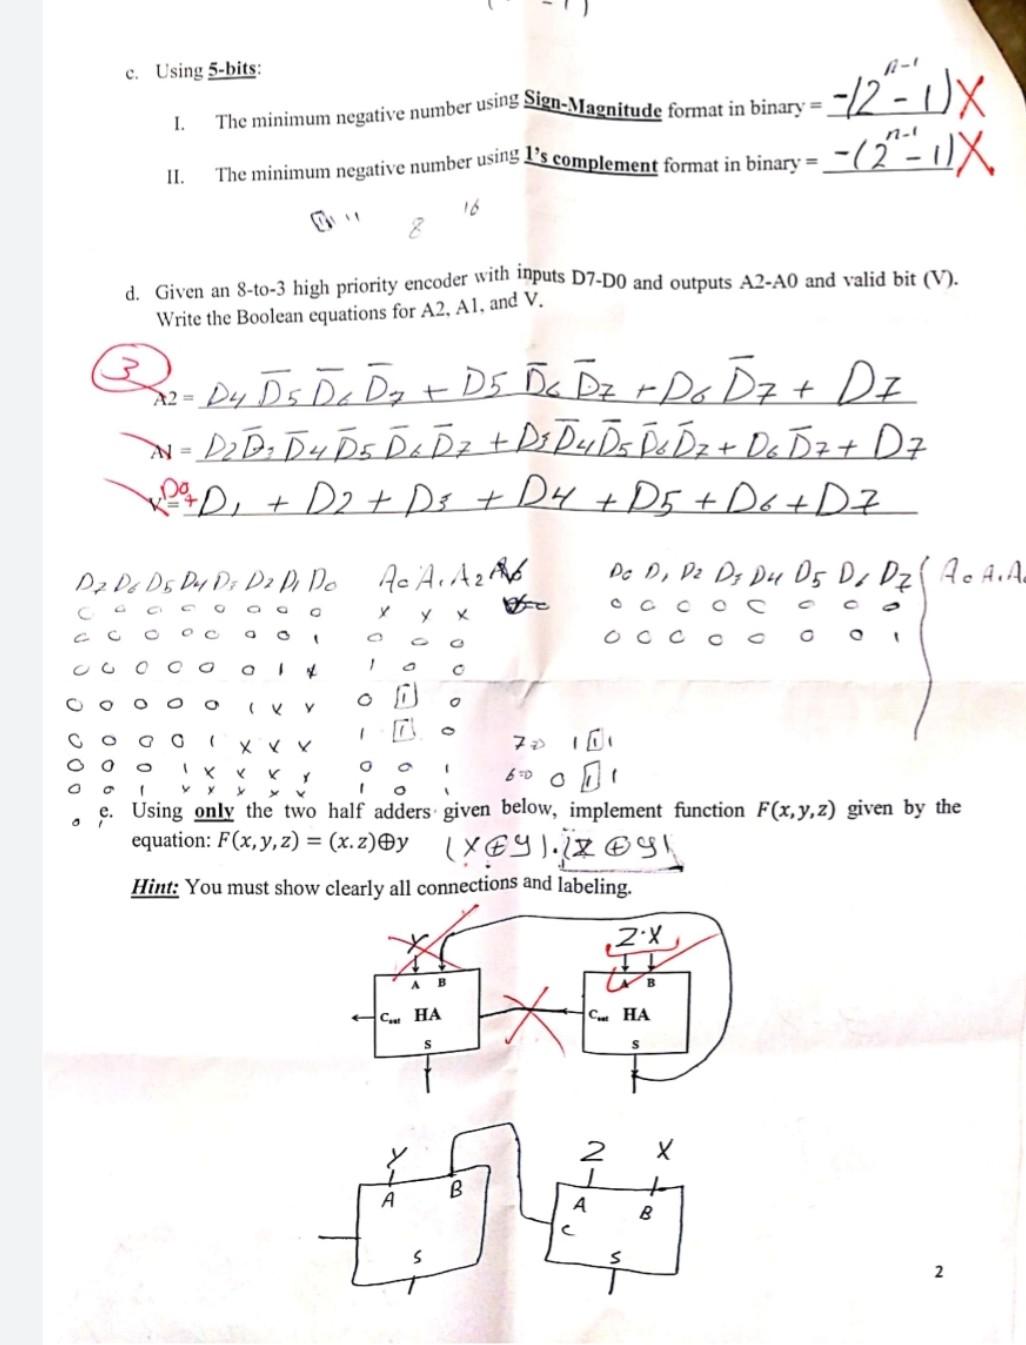 c. Using 5-bits:
I. The minimum negative number using Sign-Magnitude format in binary = -(2ⁿ⁻¹ - 1) X
II. The minimum negative number using 1's complement format in binary = -(2ⁿ⁻¹ - 1) X
8 16
d. Given an 8-to-3 high priority encoder with inputs D7-D0 and outputs A2-A0 and valid bit (V).
Write the Boolean equations for A2, A1, and V.
3
A2 = D4 D̅5 D̅6 D̅7 + D5 D̅6 D̅7 + D6 D̅7 + D7
A1 = D2 D̅3 D̅4 D̅5 D̅6 D̅7 + D3 D̅4 D̅5 D̅6 D̅7 + D6 D̅7 + D7
V = D0 + D1 + D2 + D3 + D4 + D5 + D6 + D7
D7 D6 D5 D4 D3 D2 D1 D0 A0 A1 A2 D0 D1 D2 D3 D4 D5 D6 D7 A0 A1 A
0 0 0 0 0 0 0 0 x y x 0 0 0 0 0 0 0 0
0 0 0 0 0 0 0 1 0 0 0 0 0 0 0 0 0 0 1
0 0 0 0 0 0 1 x 1 0 0
0 0 0 0 0 1 x x 0 1 0
0 0 0 0 1 x x x 1 1 0 7 => 1 1 1
0 0 0 1 x x x x 0 0 1 6 => 0 1 1
0 0 1 x x x x x 1 0 1
0
e. Using only the two half adders given below, implement function F(x,y,z) given by the
equation: F(x, y, z) = (x. z)⊕y (x⊕y).(z⊕y)
Hint: You must show clearly all connections and labeling.
Y Z·X
A B A B
Cout HA Cout HA
S S
Y Z X
A B A B
C
S S
2